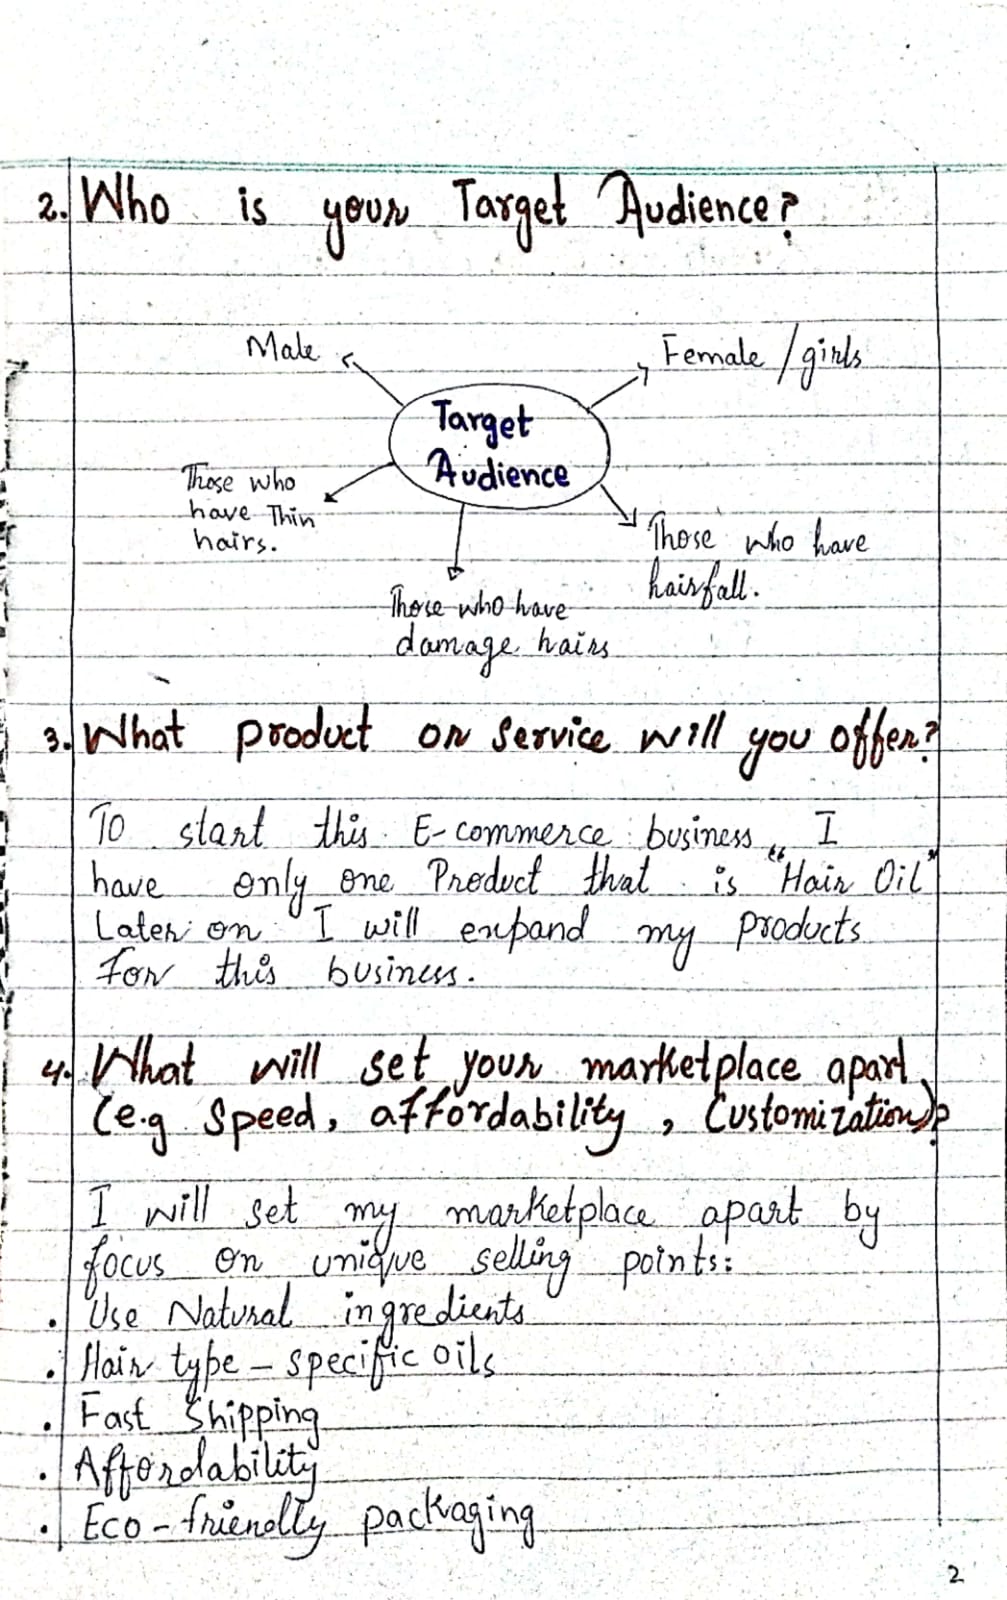 2. Who is your Target Audience?
Male
Female / girls
Target
Audience
Those who
have Thin
hairs.
Those who have
hairfall.
Those who have
damage hairs
3. What product or service will you offer?
To start this E-commerce business, I
have only one Product that is "Hair Oil"
Later on I will expand my products
For this business.
4. What will set your marketplace apart
(e.g Speed, affordability, Customization)?
I will set my marketplace apart by
focus on unique selling points:
. Use Natural ingredients
. Hair type - specific oils
. Fast Shipping
. Affordability
. Eco-friendly packaging
2